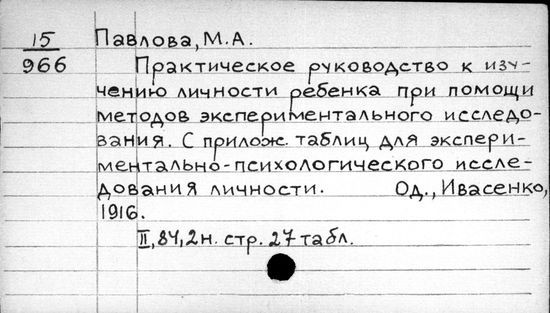 15 Павлова, М.А.
966 Практическое руководство к изу-
чению личности ребенка при помощи
методов экспериментального исследо-
вания. С прилож. таблиц для экспери-
ментально-психологического иссле-
дования личности. Од., Ивасенко,
1916.
II, 84, 2 н. стр. 27 табл.